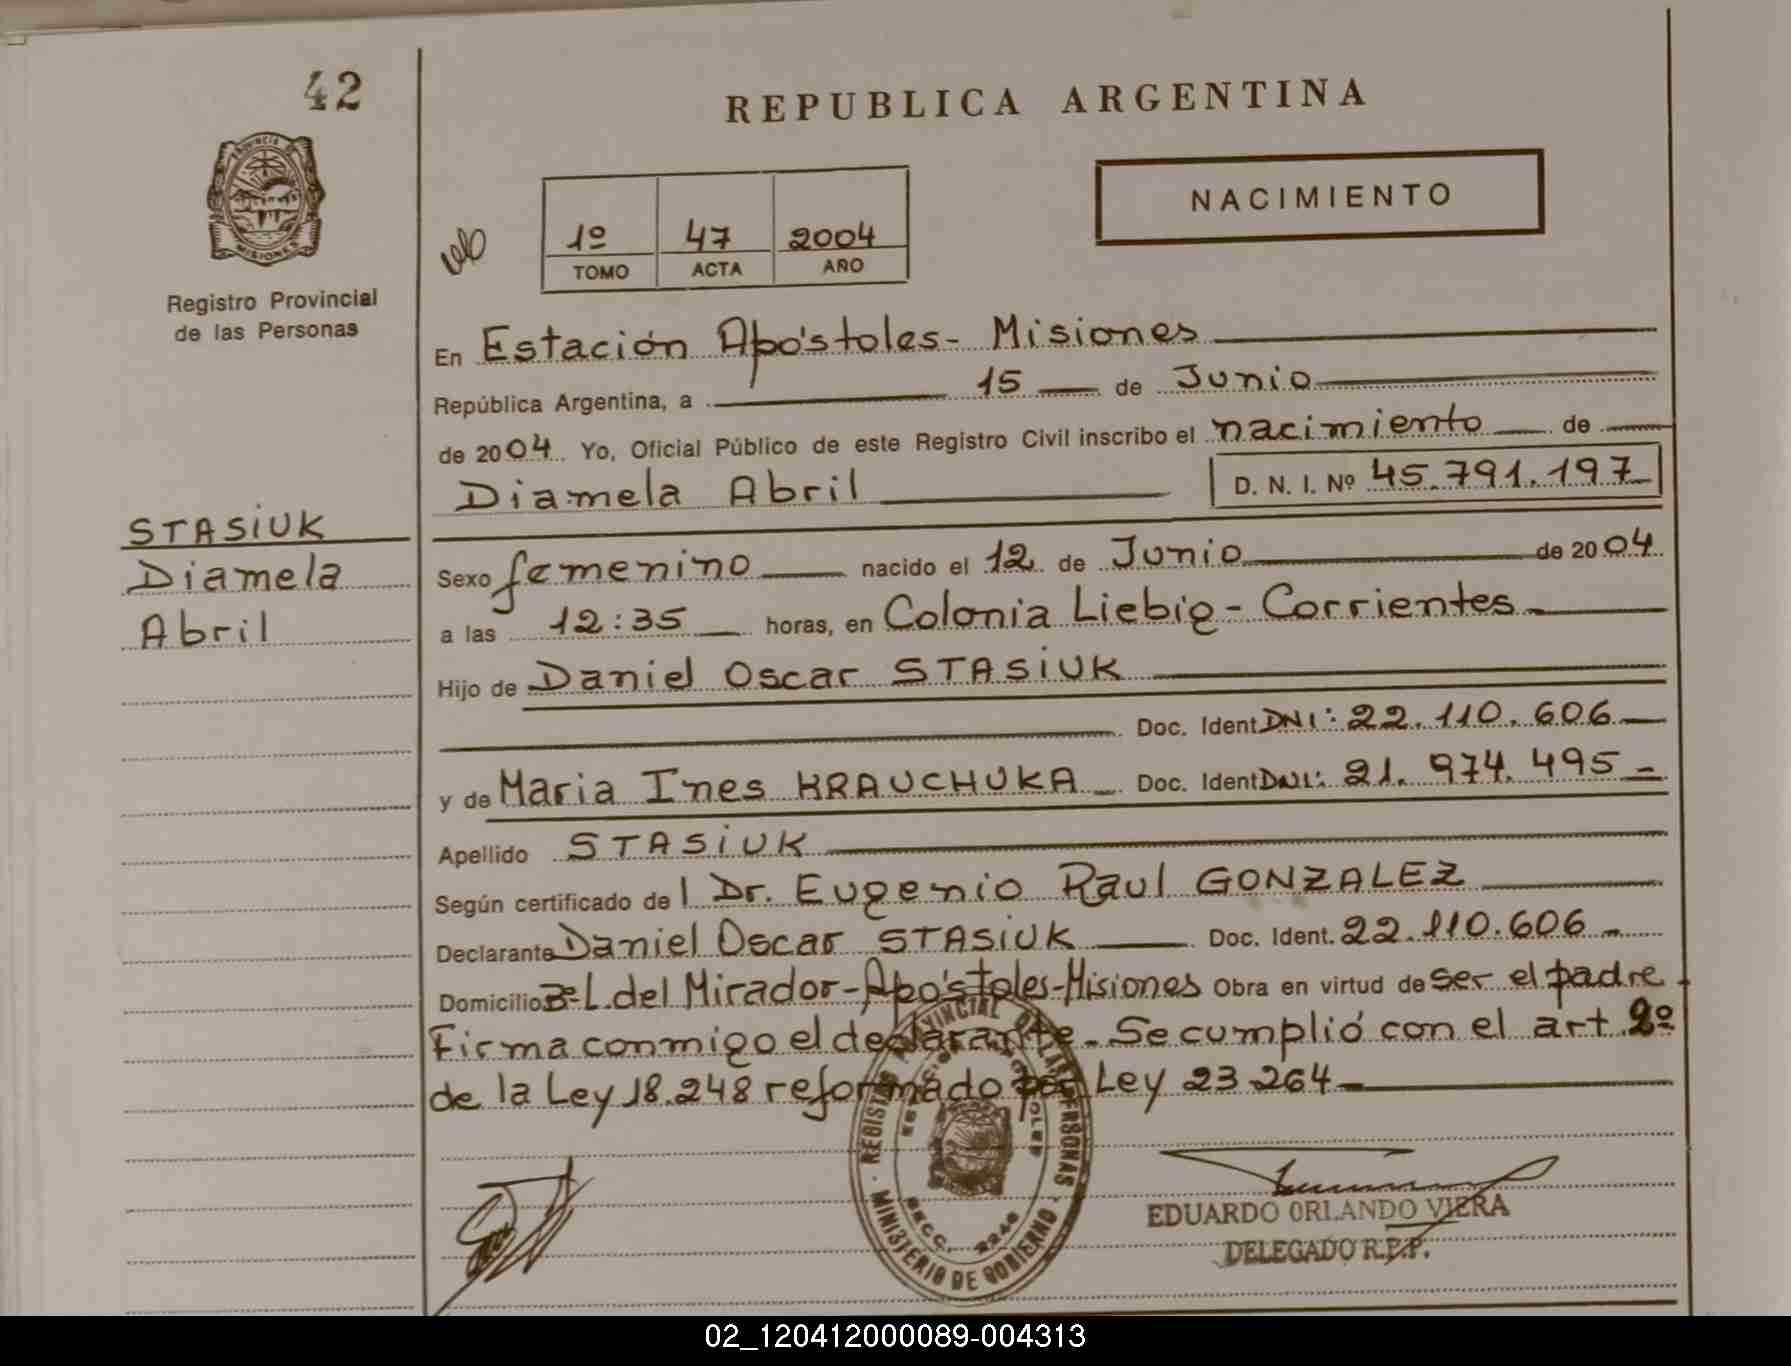 42
REPUBLICA ARGENTINA
NACIMIENTO
PROVINCIA DE
MISIONES
Registro Provincial
de las Personas
1º 47 2004
TOMO ACTA AÑO
En Estación Apóstoles- Misiones
República Argentina, a 15 de Junio
de 2004 Yo, Oficial Público de este Registro Civil inscribo el nacimiento de
Diamela Abril D. N. I. Nº 45.791.197
STASIUK
Diamela
Abril
Sexo femenino nacido el 12 de Junio de 2004
a las 12:35 horas, en Colonia Liebig - Corrientes
Hijo de Daniel Oscar STASIUK
Doc. Ident. DNI: 22.110.606
y de Maria Ines KRAUCHUKA Doc. Ident. DNI: 21.974.495
Apellido STASIUK
Según certificado de l Dr. Eugenio Raul GONZALEZ
Declarante Daniel Oscar STASIUK Doc. Ident. 22.110.606
Domicilio Bº L. del Mirador-Apóstoles-Misiones Obra en virtud de ser el padre.
Firma conmigo el declarante. Se cumplió con el art 2º
de la Ley 18.248 reformado por Ley 23.264
REGISTRO PROVINCIAL DE LAS PERSONAS
MINISTERIO DE GOBIERNO
EDUARDO ORLANDO VIERA
DELEGADO R.P.P.
02_120412000089-004313